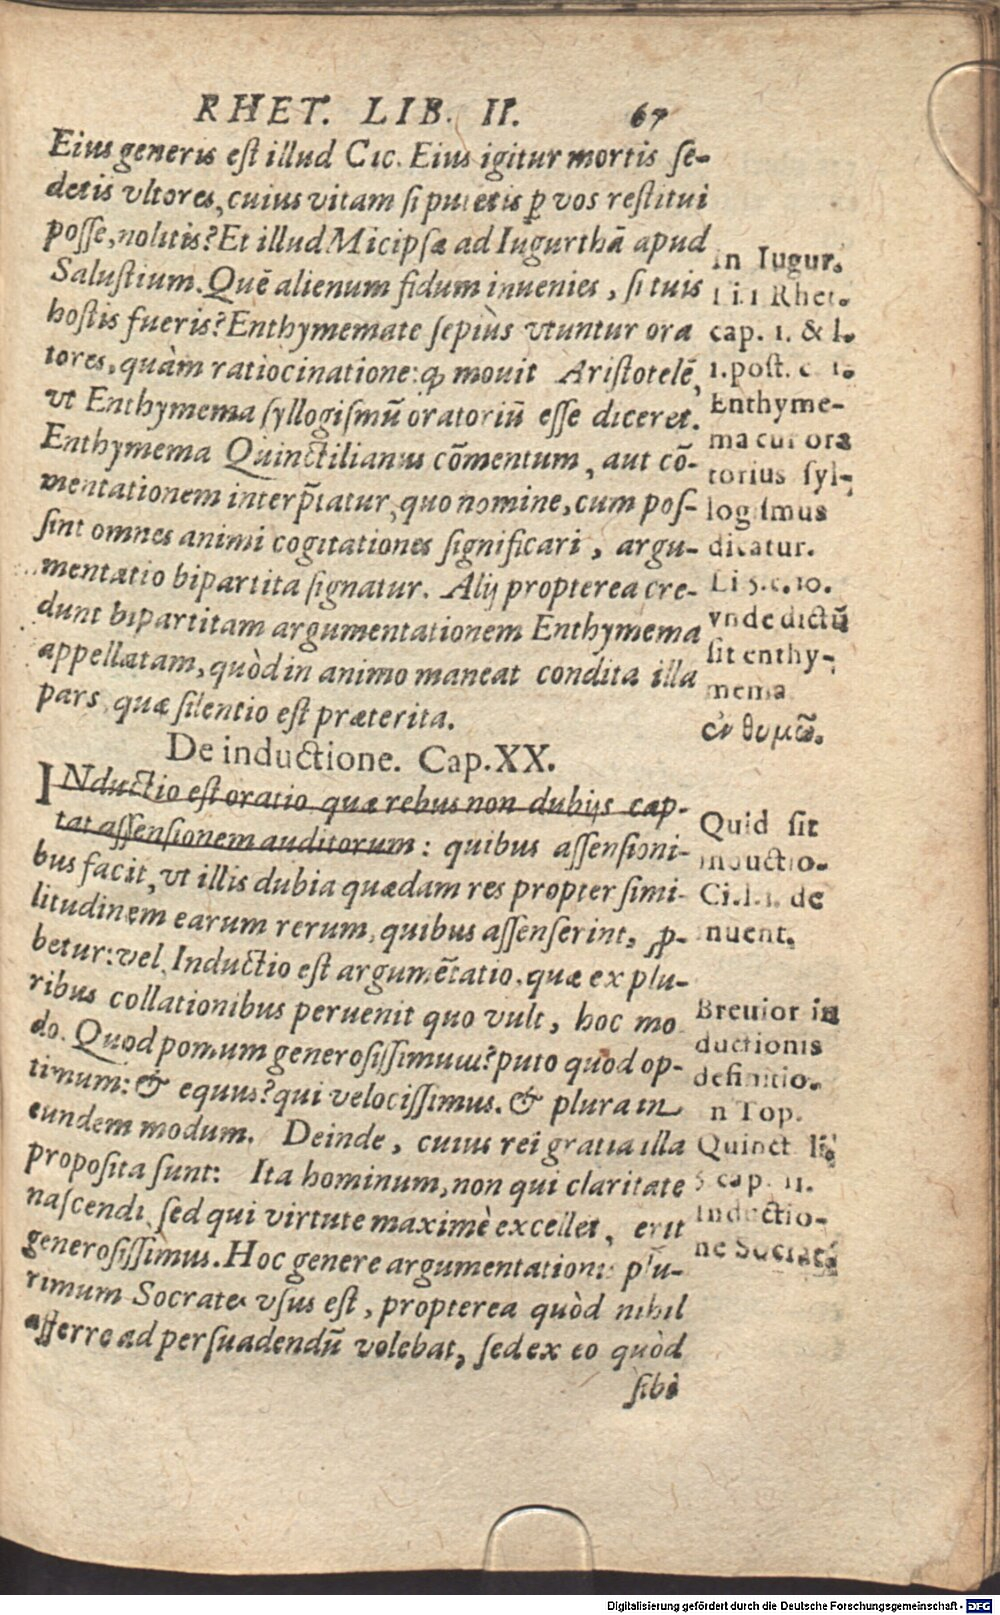 RHET. LIB. II. 67
Eius generis est illud Cic. Eius igitur mortis se-
detis vltores, cuius vitam si putetis ꝑ vos restitui
posse, nolitis? Et illud Micipsæ ad Iugurthā apud
Salustium. Quē alienum fidum inuenies, si tuis
hostis fueris? Enthymemate sepiùs vtuntur ora
tores, quàm ratiocinatione: ꝙ mouit Aristotelē,
vt Enthymema syllogismū oratoriū esse diceret.
Enthymema Quinctilianus cōmentum, aut cō-
mentationem interp̄tatur, quo nomine, cum pos-
sint omnes animi cogitationes significari, argu-
mentatio bipartita signatur. Alij propterea cre-
dunt bipartitam argumentationem Enthymema
appellatam, quòd in animo maneat condita illa
pars, quæ silentio est præterita.
De inductione. Cap. XX.
INductio est oratio quæ rebus non dubijs cap-
tat assensionem auditorum: quibus assensioni-
bus facit, vt illis dubia quædam res propter simi-
litudinem earum rerum, quibus assenserint, ꝓ-
betur: vel, Inductio est argumētatio, quæ ex plu-
ribus collationibus peruenit quo vult, hoc mo
do. Quod pomum generosissimum? puto quod op-
timum: & equus? qui velocissimus. & plura in
eundem modum. Deinde, cuius rei gratia illa
proposita sunt: Ita hominum, non qui claritate
nascendi, sed qui virtute maximè excellet, erit
generosissimus. Hoc genere argumentationis plu-
rimum Socrates vsus est, propterea quòd nihil
afferre ad persuadendū volebat, sed ex eo quòd
sibi
In Iugur.
Li.1 Rhet.
cap. 1. & l.
1. post. c. 1.
Enthyme-
ma cur ora
torius syl-
logismus
dicatur.
Li 5. c. 10.
vnde dictū
sit enthy-
mema
Quid sit
inductio.
Ci.l.1. de
inuent.
Breuior in
ductionis
definitio.
in Top.
Quinct li.
5 cap. 11.
Inductio-
ne Socrat.
Digitalisierung gefördert durch die Deutsche Forschungsgemeinschaft - DFG